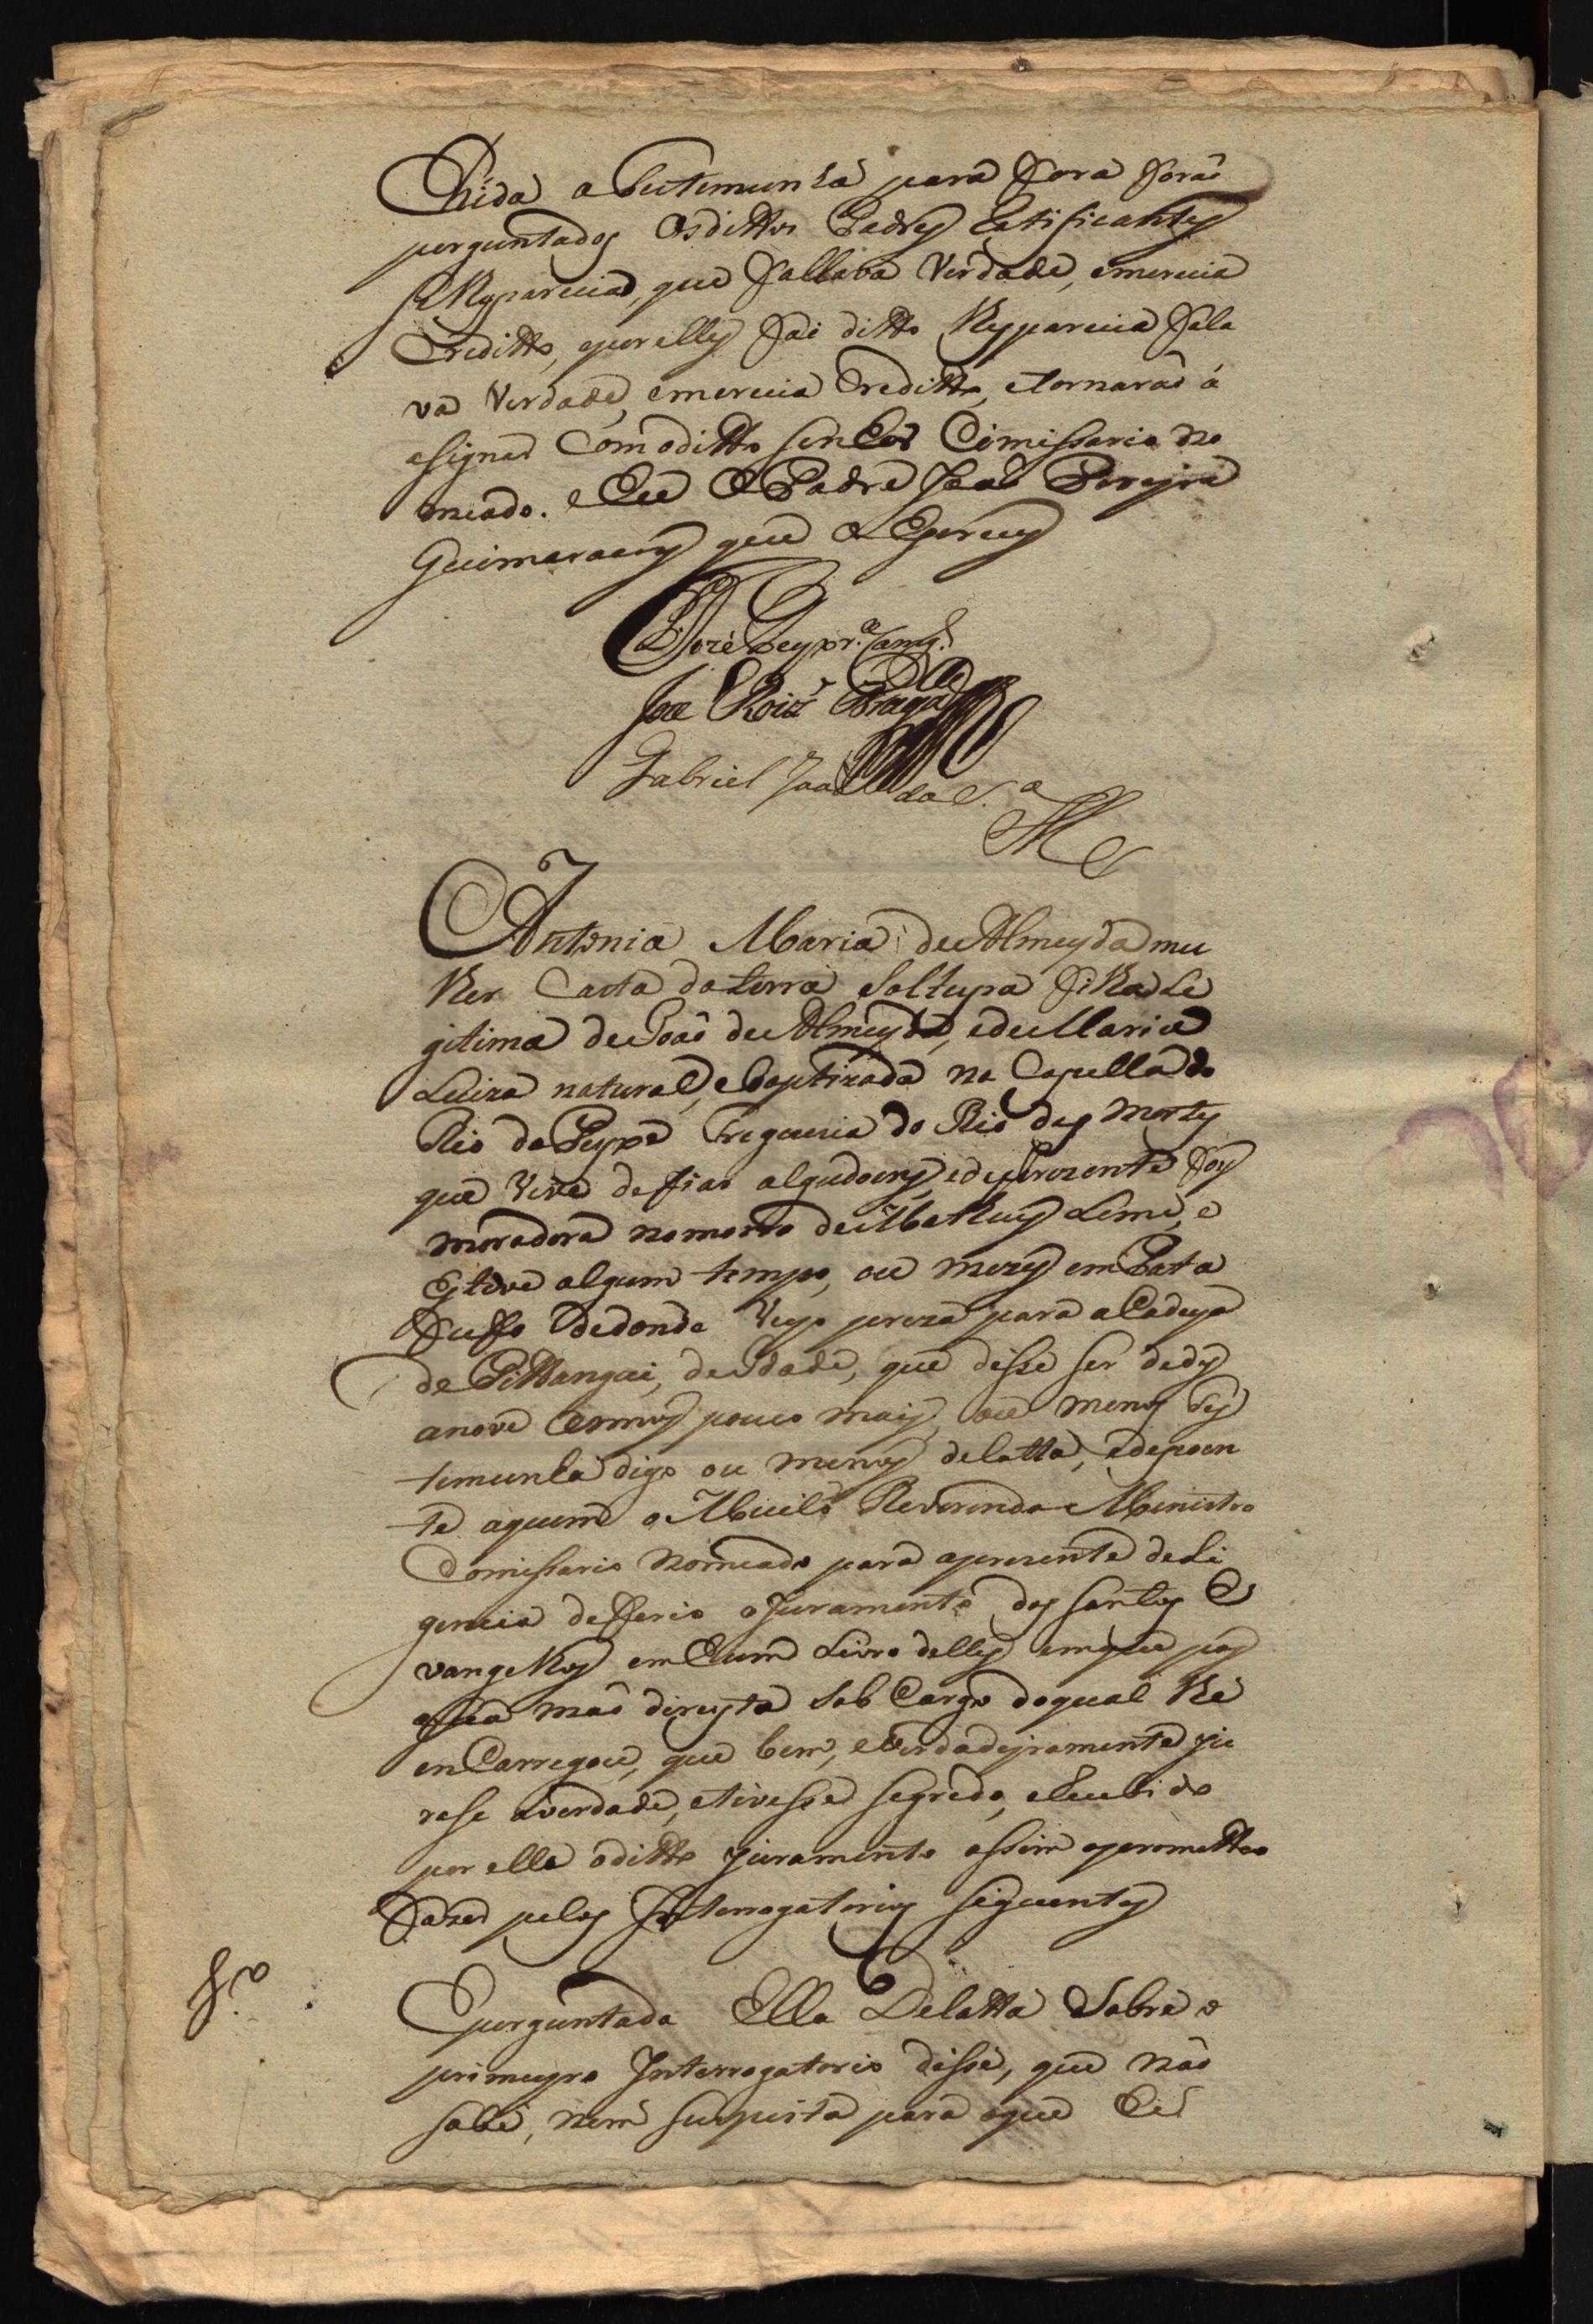 hida a testemunha para fora forão
perguntados os dittos Padres Ratificantes
se lhes parecia, que fallava verdade, e merecia
Creditto, e por elles foi ditto lhes parecia fala
va verdade, e merecia Creditto, e tornarão á
asignar com o ditto senhor Comissario no
meado. e Eu O Padre João Pereyra
Guimaraens que o Escrevy
José Roiz Braga
Gabriel João da S.ª
Antonia Maria de Almeyda mu
lher Casta da terra Solteyra filha Le
gitima de João de Almeyda, e de Maria
Luiza natural, e baptizada na Capella do
Rio do Peyxe Freguezia do Rio das mortes
que vive de fiar algudoens, e de prezente foy
moradora no morro de Matheus Leme, e
Esteve algum tempo, ou mezes em Pata
fuffo dedonde veyo preza para a Cadeya
de Pittangui, de Idade, que disse ser de dez
anove annos pouco mais, ou menos tes
temunha digo ou menos delatta, e depoen
te aquem o Muito Reverendo Ministro
Comissario nomeado para a prezente deli
gencia defferio o Juramento dos Santos E
vangelhos em hum Livro delles em que pos
a sua mão direyta sob Cargo do qual lhe
en Carregou, que bem, e verdadeyramente ju
rase a verdade, e tivesse segredo, e Recebido
por ella o ditto juramento assim o prometteo
fazer pelos Interrogatorios seguentes
E perguntada Ella Delatta Sobre o
primeyro Interrogatorio disse, que não
sabe, nem suspeita para o que he